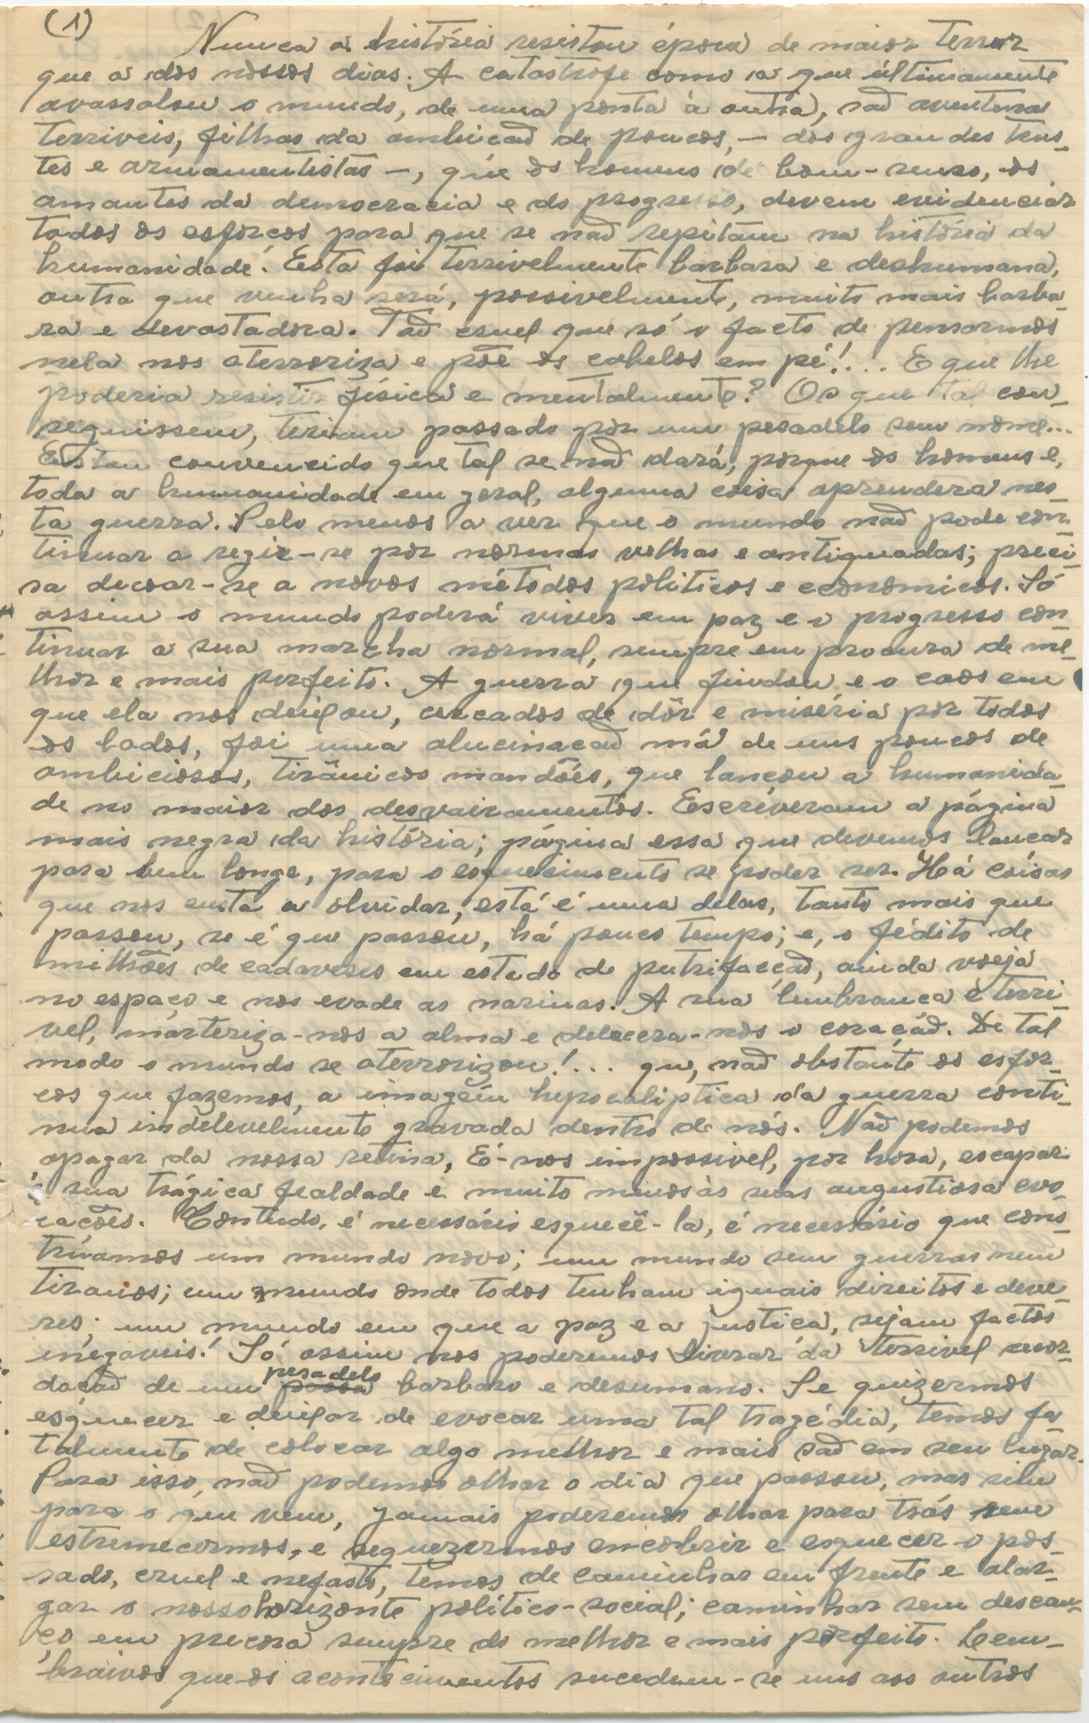 (1)
Nunca a história resistou época de maior terror
que a dos nossos dias. A catastrofe como a que últimamente
avassalou o mundo, de uma ponta à outra, saõ aventuras
terriveis, filhas da ambicaõ de poucos, — dos grandes trus-
tes e armamentistas —, que os homens de bom-senso, os
amantes da democracia e do progresso, devem evidenciar
todos os esforcos para que se naõ repitam na história da
humanidade! Esta foi terrivelmente barbara e deshumana,
outra que venha será, possivelmente, muito mais barba-
ra e devastadora. Taõ cruel que só o facto de pensarmos
nela nos aterroriza e põe os cabelos em pé!... E que lhe
poderia resistir física e mentalmente? Os que tal con-
seguissem, teriam passado por um pesadelo sem nome...
Estou convencido que tal se naõ dará, porque os homens e,
toda a humanidade em geral, alguma coisa aprendera nes-
ta guerra. Pelo menos a ver que o mundo naõ pode con-
tinuar a regir-se por normas velhas e antiquadas; preci-
sa decoar-se a novos métodos politicos e económicos. Só
assim o mundo poderá viver em paz e o progresso con-
tinuar a sua marcha normal, sempre em procura de me-
lhor e mais perfeito. A guerra que findou e o caos em
que ela nos deixou, cercados de dôr e miséria por todos
os lados, foi uma alucinacaõ má de uns poucos de
ambiciosos, tirânicos mandões, que lançou a humanida-
de no maior dos desvairamentos. Escreveram a página
mais negra da história; página essa que devemos lancar
para bem longe, para o esquecimento se poder ser. Há coisas
que nos custa a olvidar, está é uma delas, tanto mais que
passou, se é que passou, há pouco tempo; e, o fédito de
milhões de cadaveres em estado de putrifacçaõ, ainda voeja
no espaço e nos evade as narinas. A sua lembranca é terri-
vel, marteriza-nos a alma e delecera-nos o coraçaõ. De tal
modo o mundo se aterrorizou!... que, naõ obstante os esfor-
cos que fazemos, a imagem hepocaliptica da guerra conti-
nua indelevelmente gravada dentro de nós. Naõ podemos
apagar da nossa retina, É-nos impossivel, por hora, escapar
à sua trágica fealdade e muito menos às suas angustiosa evo-
cações. Contudo, é necessário esquecê-la, é necessário que cons-
truamos um mundo novo; um mundo sem guerras nem
tiranos; um mundo onde todos tenham iguais direitos e deve-
res; um mundo em que a paz e a justica, sejam factos
inegaveis! Só assim nos poderemos livrar da terrivel recor-
dacaõ de um pesadelo barbaro e desumano. Se quizermos
esquecer e deixar de evocar uma tal tragédia, temos fa-
talmente de colocar algo melhor e mais saõ em seu lugar.
Para isso, naõ podemos olhar o dia que passou, mas sim
para o que vem, Jamais poderemos olhar para trás sem
estremecermos, e se quezermos encobrir e esquecer o pas-
sado, cruel e nefasto, temos de caminhar em frente e alar-
gar o nosso horizonte politico-social; caminhar sem descan-
ço em precora sempre do melhor e mais perfeito. Lem-
braivos que os acontecimentos sucedem-se uns aos outros